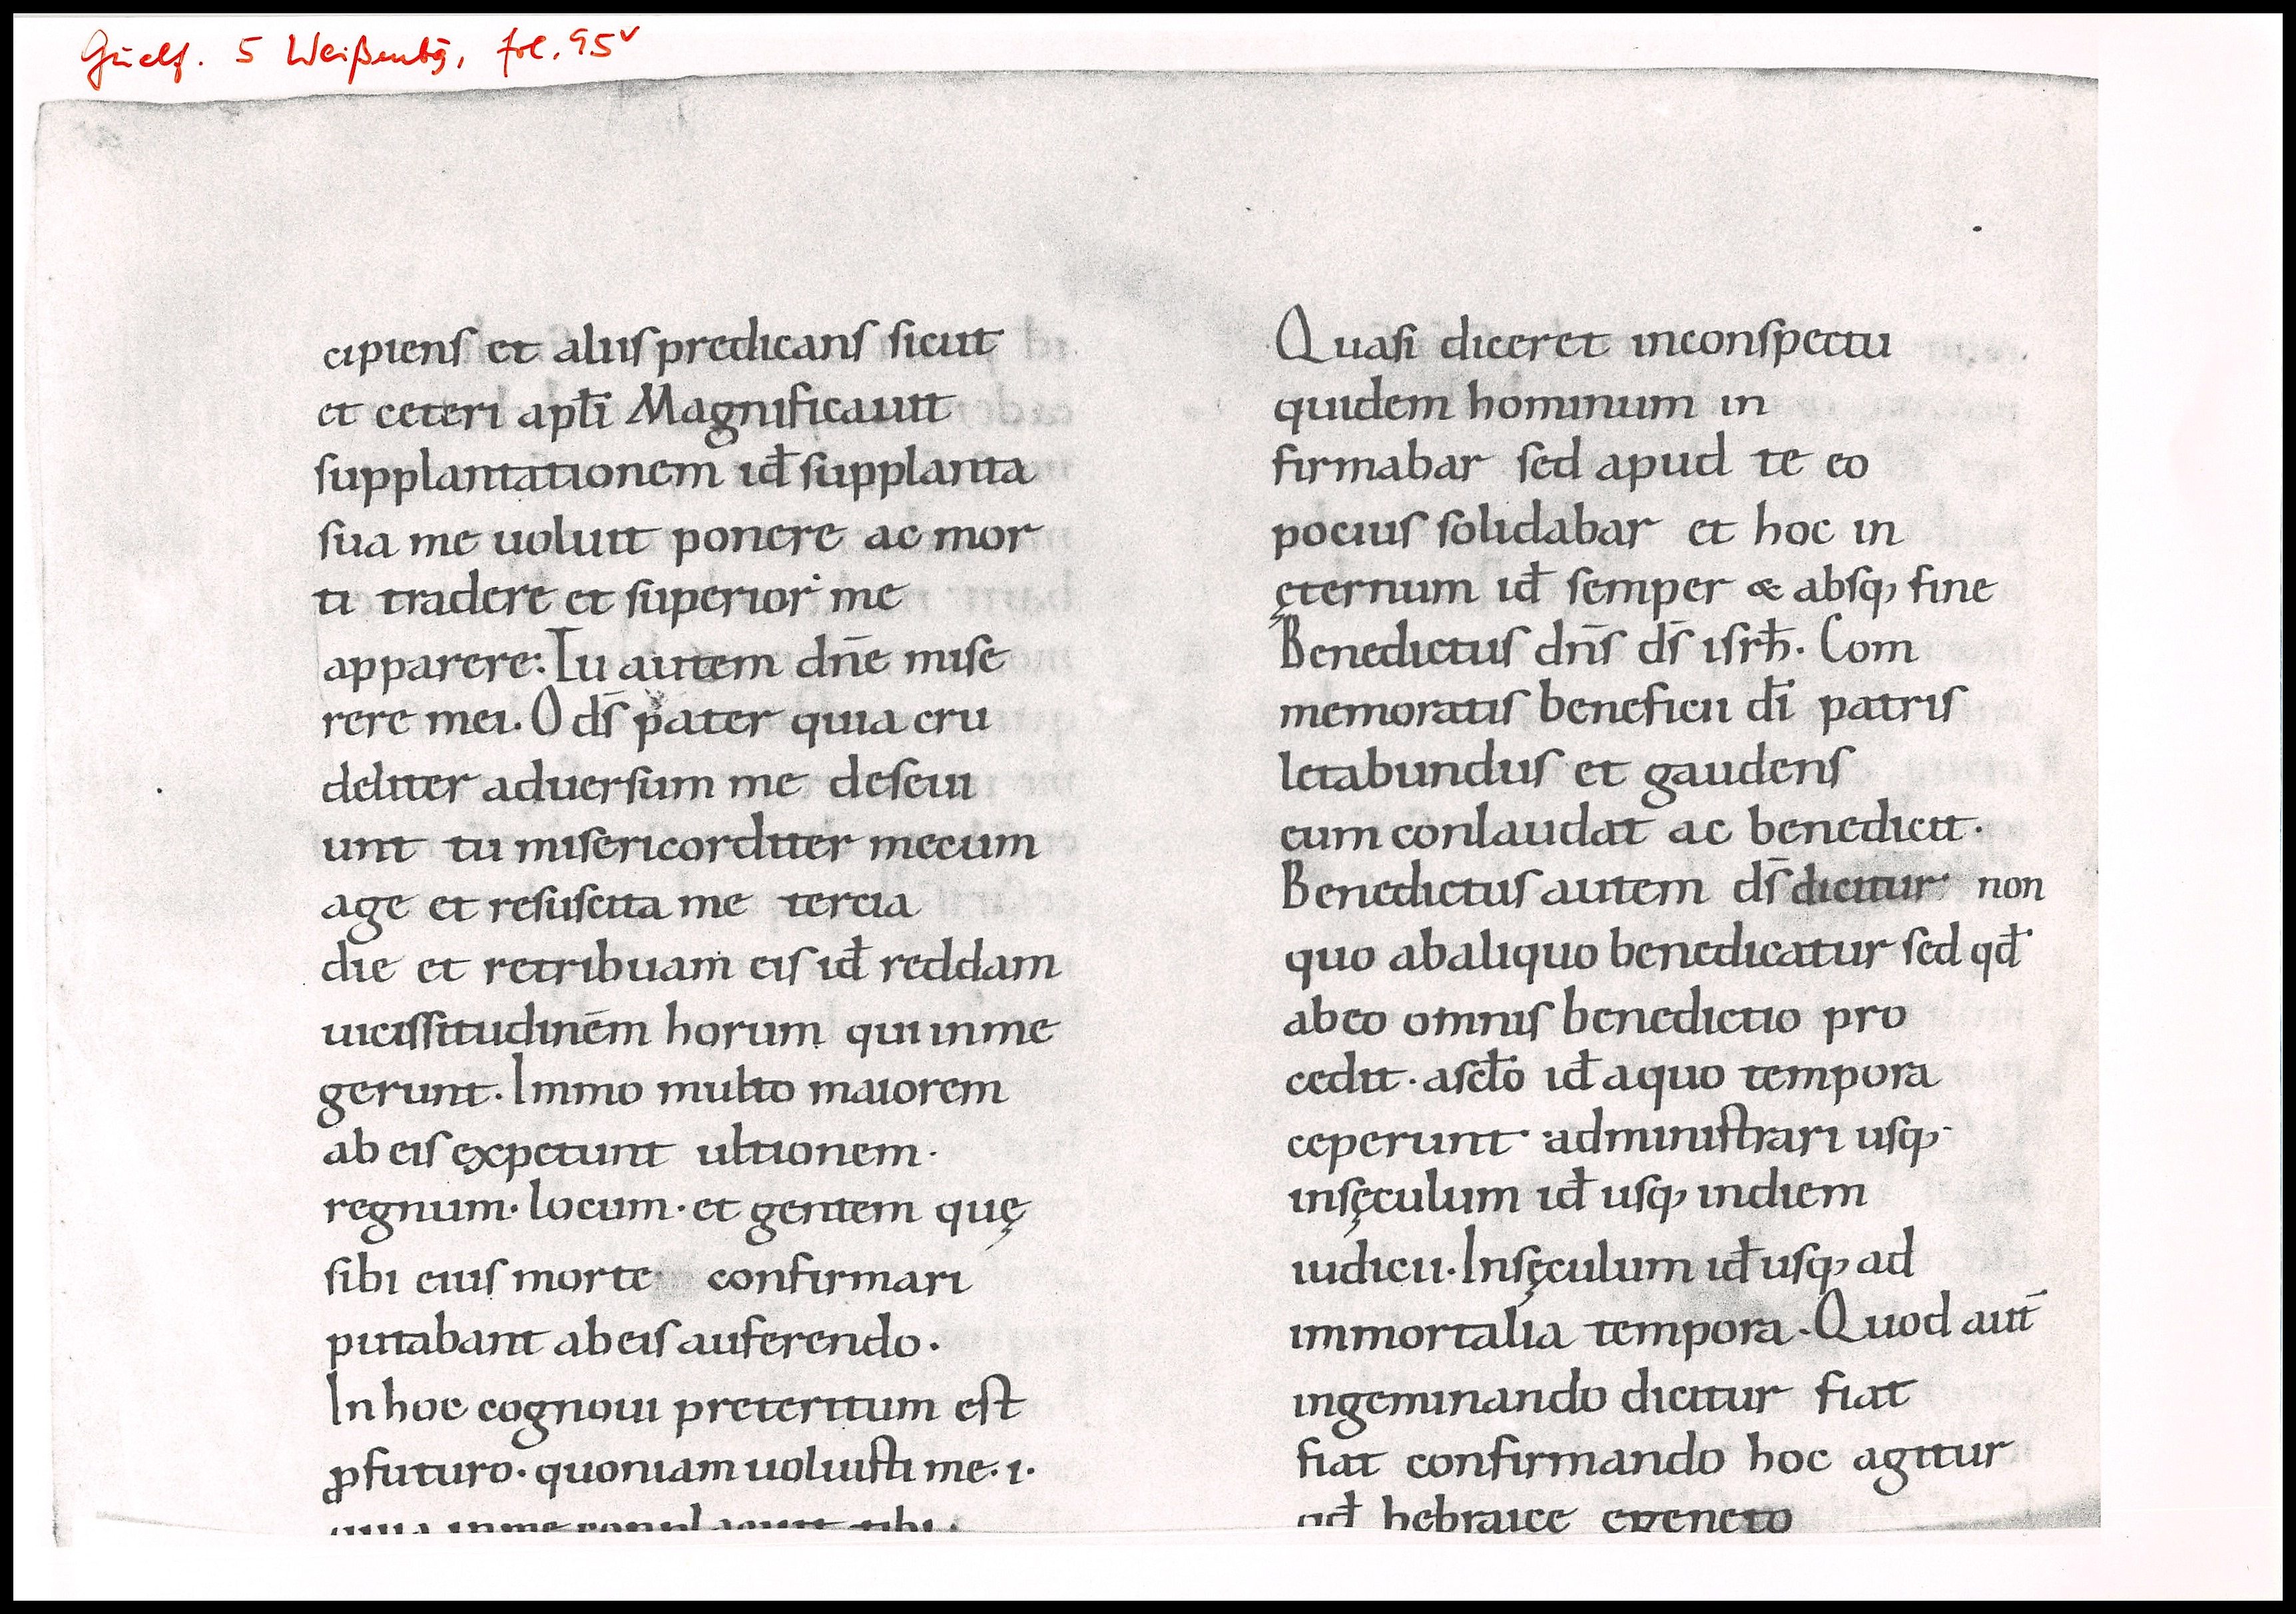 Guelf. 5 Weißenbg, fol. 95v
cipiens et aliis predicans sicut
et ceteri apłi Magnificauit
supplantationem id̄ supplanta
sua me uoluit ponere ac mor
ti tradere et superior me
apparere: Tu autem dn̄e mise
rere mei. O ds̄ pater quia cru
deliter aduersum me deseui
unt tu misericorditer mecum
age et resuscita me tercia
die et retribuam eis id̄ reddam
uicissitudinēm horum qui inme
gerunt. Immo multo maiorem
ab eis expetunt ultionem·
regnum· locum· et gentem quę
sibi eius morte confirmari
putabant abeis auferendo·
In hoc cognoui preteritum est
ꝓfuturo· quoniam uoluisti me· i·
quia inme complacuit tibi·
Quasi diceret inconspectu
quidem hominum in
firmabar sed apud te eo
pocius solidabar et hoc in
ęternum id̄ semper & absq, fine
Benedictus dn̄s ds̄ isrł. Com
memoratis beneficii dī patris
letabundus et gaudens
eum conlaudat ac benedicit·
Benedictus autem ds̄ dicitur non
quo abaliquo benedicatur sed qd̄
abeo omnis benedictio pro
cedit· ascło id̄ aquo tempora
ceperunt administrari usq,
insęculum id̄ usq, indiem
iudicii· Insęculum id̄ usq, ad
immortalia tempora· Quod aut̄
ingeminando dicitur fiat
fiat confirmando hoc agitur
qd̄ hebraice egeneto